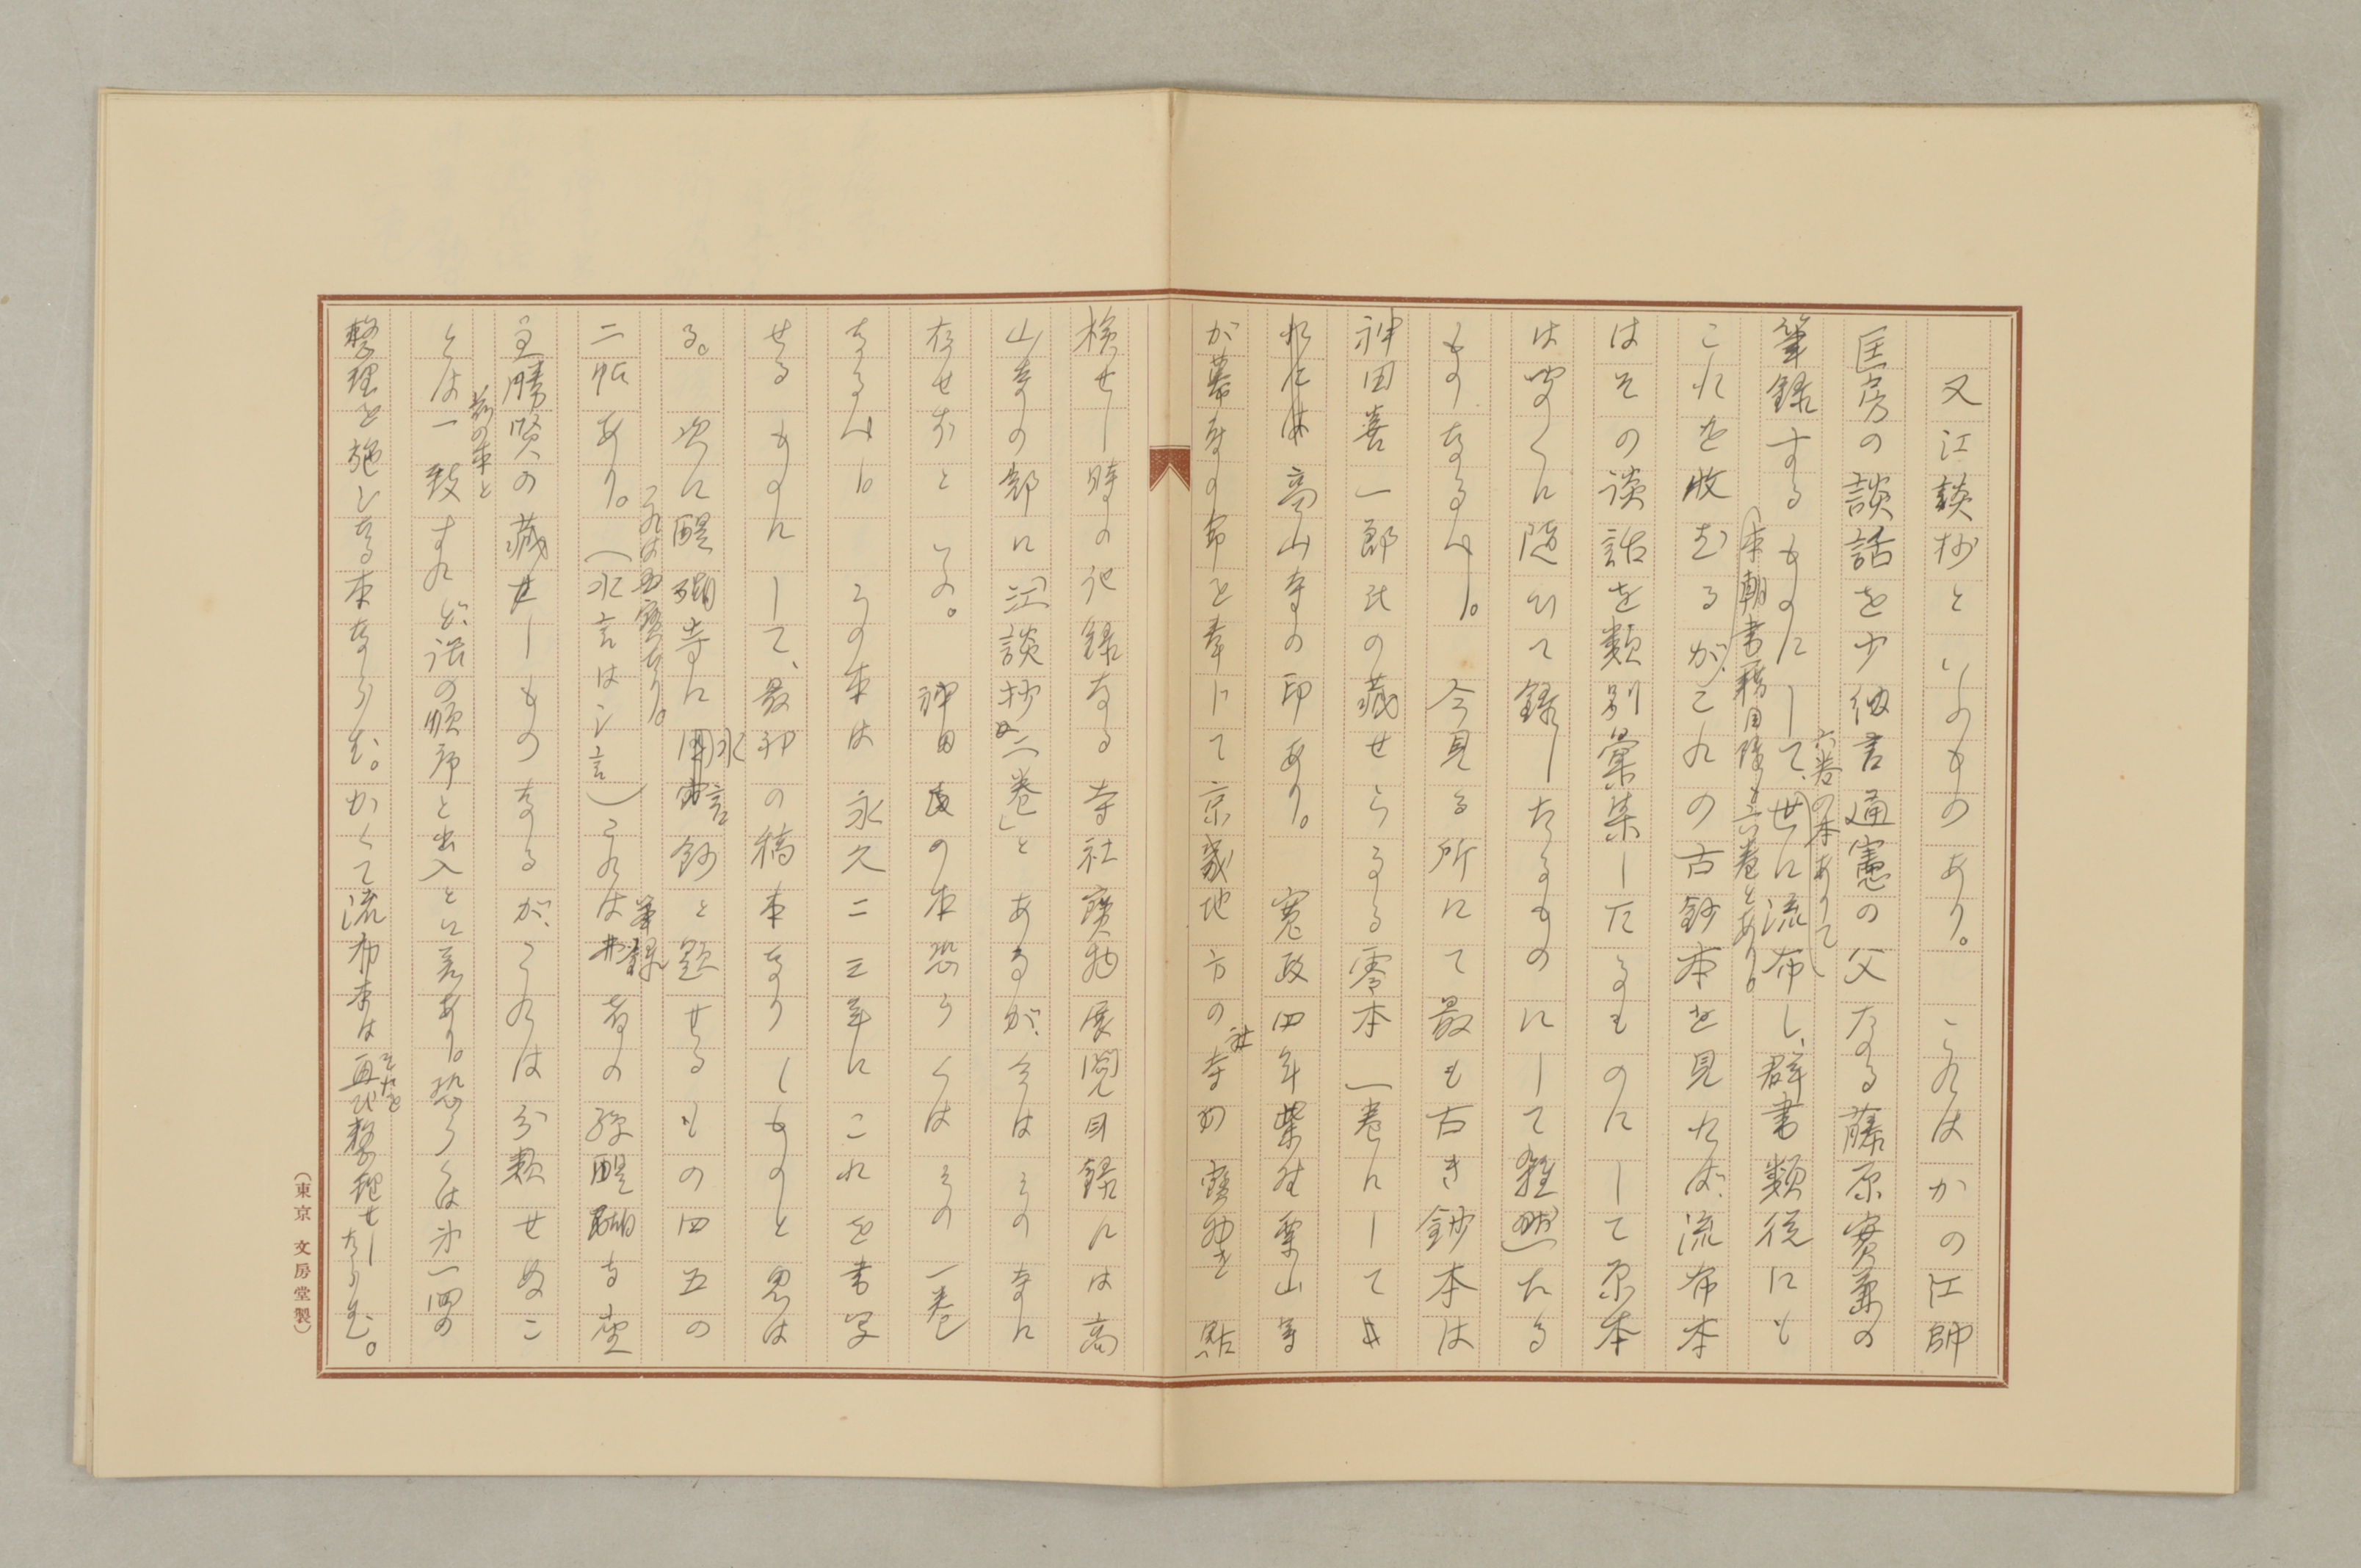 又江談抄といふものあり。これはかの江帥
匡房の談話を少納言通憲の父なる藤原實兼の
六巻の本ありて
筆録するものにして、世に流布し、群書類従にも
(本朝書籍目録も六巻とあり。
これを收むるがこれの古鈔本を見れば、流布本
はその談話を類別彙集したるものにして原本
は聞くに随ひて録したるものにして雑然たる
ものなるべし。今見る所にて最も古き鈔本は
神田喜一郎氏の藏せらるる零本一巻にして
れには高山寺の印あり。寛政四年柴野栗山等
が幕府の命を奉じて京畿地方の社寺の寶物を點
檢せし時の記録なる寺社寶物展閲目録には高
山寺の部に江談抄二巻」とあるが、今はその寺に
存せずといふ。神田氏の本恐らくはその一巻
なるべし。その本は永久二三年にこれを書写
せるものにして、最初の稿本なりしものと思は
る。次に醍醐寺に水言鈔と題せるもの四五の
これは
二帖あり。(水言は氵言)これは筆録者の孫醍醐寺座
主勝賢の藏せしものなるが、これは分類せぬこ
前の本と
とは一致すれど、話の順序と出入とに差あり。恐らくは第一回の
整理を施しゝ本ならむ。かくて流布本は
それを
再び整理せしならむ。
(東京 文房堂製)